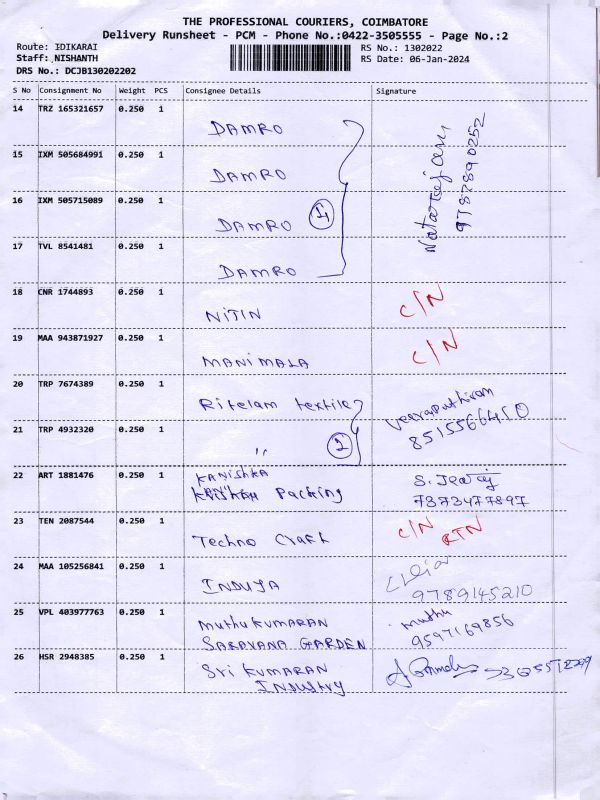 THE PROFESSIONAL COURIERS, COIMBATORE
Delivery Runsheet - PCM - Phone No.:0422-3505555 - Page No.:2
Route: IDIKARAI RS No.: 1302022
Staff: NISHANTH RS Date: 06-Jan-2024
DRS No.: DCJB130202202
S No Consignment No Weight PCS Consignee Details Signature
14 TRZ 165321657 0.250 1 DAMRO
15 IXM 505684991 0.250 1 DAMRO
16 IXM 505715089 0.250 1 DAMRO 4
17 TVL 8541481 0.250 1 DAMRO
Natarajan
9787890252
18 CNR 1744893 0.250 1 NITIN C/N
19 MAA 943871927 0.250 1 MANIMALA C/N
20 TRP 7674389 0.250 1 Ritelam textile Veeraputhiran
21 TRP 4932320 0.250 1 " 2 8515566450
22 ART 1881476 0.250 1 KANISHKA
Packing S. 7373477897
23 TEN 2087544 0.250 1 Techno Craft C/N RTN
24 MAA 105256841 0.250 1 INDUJA 9789145210
25 VPL 403977763 0.250 1 MUTHU KUMARAN Muthu
SARAVANA GARDEN 9597169856
26 HSR 2948385 0.250 1 Sri KUMARAN
INDUSTRY